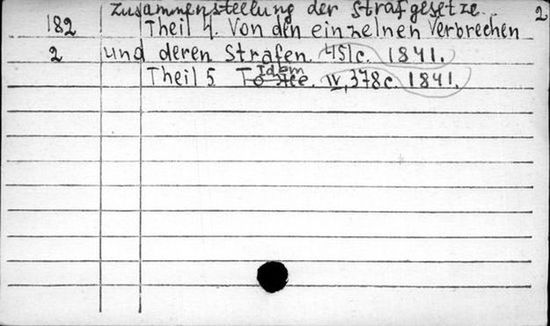 Zusammenstellung der Strafgesetze. 2
182 Theil 4. Von den einzelnen Verbrechen
2 und deren Strafen. 451c. 1841.
Idem
Theil 5. То же. IV, 378c. 1841.